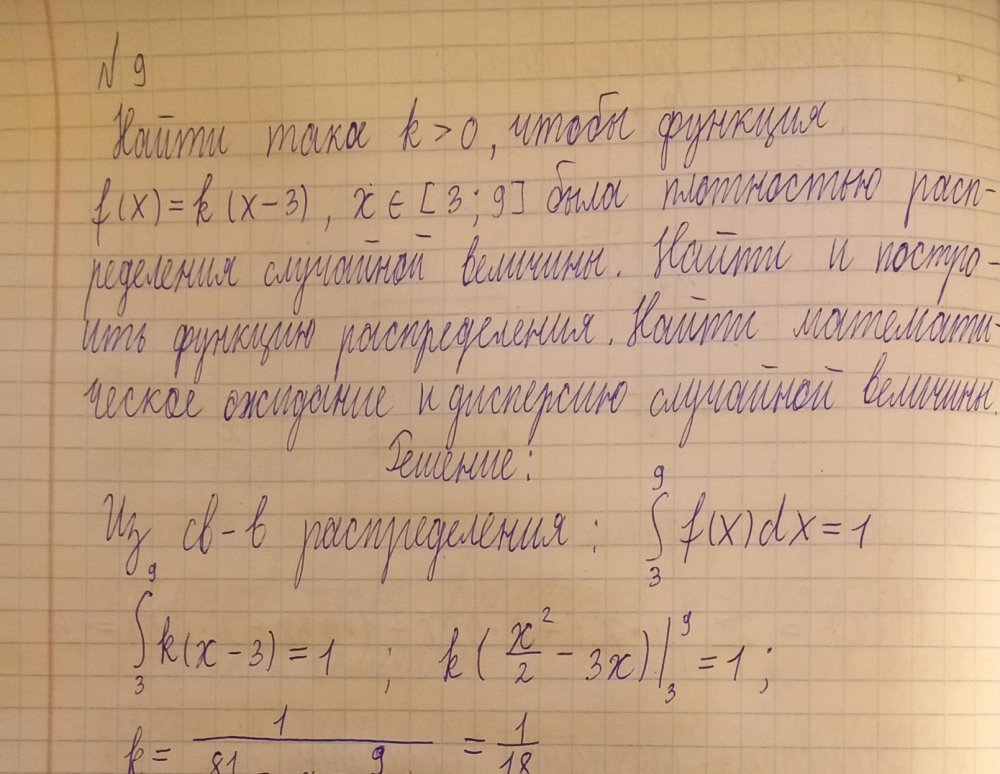 N 9
Найти таков k > 0, чтобы функция
f(x) = k (x-3), x ∈ [3; 9] была плотностью расп-
ределения случайной величины. Найти и постро-
ить функцию распределения. Найти математи
ческое ожидание и дисперсию случайной величины.
Решение:
Из св-в распределения: ∫₃⁹ f(x)dx = 1
∫₃⁹ k(x-3) = 1 ; k (x²/2 - 3x)|₃⁹ = 1 ;
k = 1/(81 - 9) = 1/18